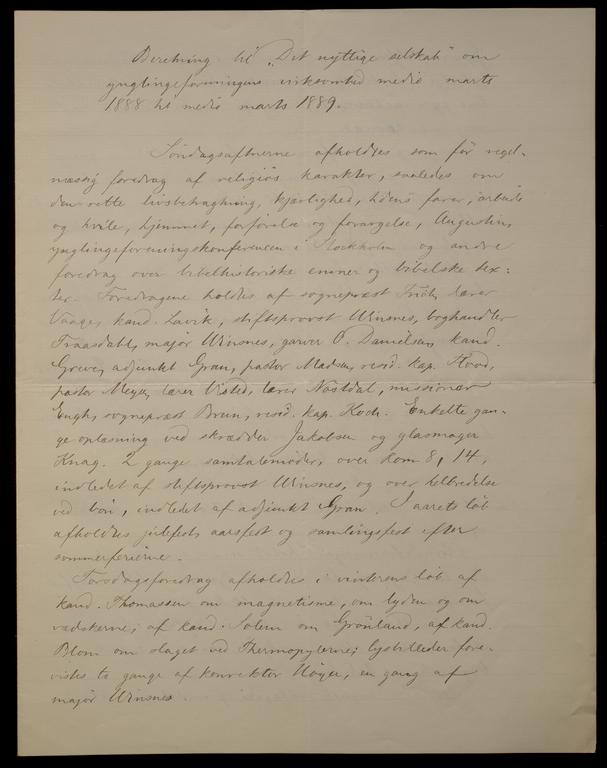 Beretning til "Det nyttige selskab" om
ynglingeforeningens virksomhed medio marts
1888 til medio marts 1889.
Søndagsaftnerne afholdtes som før regel-
mæssig foredrag af religiøs karakter, saaledes om
den rette livsbetragtning, kjærlighed, tidens farer, arbeide
og hvile, hjemmet, forførelse og forargelse, Augustin,
ynglingeforeningskonferencen i Stockholm og andre
foredrag over bibelhistoriske emner og bibelske tex-
ter. Foredragene holdes af sognepræst lærer
Vaage, kand. Lavik, stiftsprovst Winsnes, boghandler
Fraasdahl, major Winsnes, garver O. Danielsen, kand.
Greve, adjunkt Gran, pastor Madsen, resid. kap. Hood,
pastor Meyer, lærer Visted, lærer Nøstdal, missionær
Engh, sognepræst Brun, resid. kap. Koch. Enkelte gan-
ge oplæsning ved skrædder Jakobsen og glasmager
Knag. 2 gange samtalemøder, over Rom 8, 14,
indledet af stiftsprovst Winsnes, og over helbredelse
ved bøn, indledet af adjunkt Gran. I aarets løb
afholdtes julefest, aarsfest og samlingsfest efter
sommerferierne.
Torsdagsforedrag afholdtes i vinterens løb af
kand. Thomassen om magnetisme, om lyden og om
vædskerne; af kand. Solem om Grønland, af kand.
Blom om slaget ved Thermopylerne; lysbilleder fore-
vistes to gange af konrektor Høyer, en gang af
major Winsnes.